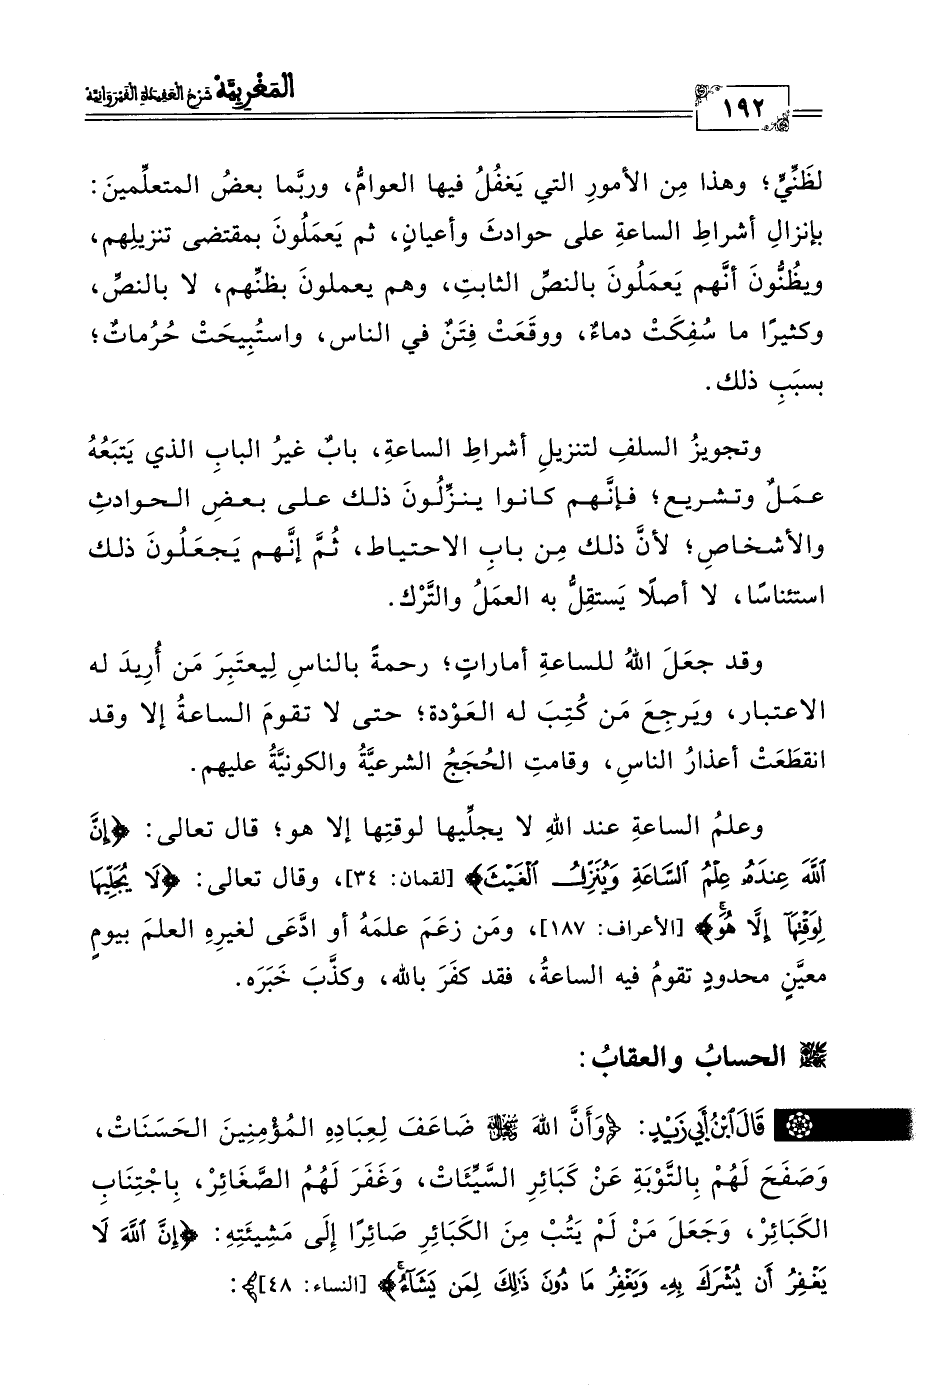 ١٩٢
المَغْربيَّة شَرْحُ العَقِيدَةِ القَيْرَوَانِيَّة
لظَنِّيٍّ؛ وهذا مِن الأمورِ التي يَغفُلُ فيها العوامُّ، وربَّما بعضُ المتعلِّمينَ:
بإنزالِ أشراطِ الساعةِ على حوادثَ وأعيانٍ، ثم يَعمَلُونَ بمقتضى تنزيلِهم،
ويظُنُّونَ أنَّهم يَعمَلُونَ بالنصِّ الثابتِ، وهم يعملونَ بظنِّهم، لا بالنصِّ،
وكثيرًا ما سُفِكَتْ دماءٌ، ووقَعَتْ فِتَنٌ في الناس، واستُبِيحَتْ حُرُماتٌ؛
بسبَبِ ذلك.
وتجويزُ السلفِ لتنزيلِ أشراطِ الساعةِ، بابٌ غيرُ البابِ الذي يَتبَعُهُ
عمَلٌ وتشريع؛ فإنَّهم كانوا ينزِّلُونَ ذلك على بعضِ الحوادثِ
والأشخاصِ؛ لأنَّ ذلك مِن بابِ الاحتياط، ثُمَّ إنَّهم يَجعَلُونَ ذلك
استئناسًا، لا أصلًا يَستقِلُّ به العمَلُ والتَّرْك.
وقد جعَلَ اللهُ للساعةِ أماراتٍ؛ رحمةً بالناسِ لِيعتبِرَ مَن أُرِيدَ له
الاعتبار، ويَرجِعَ مَن كُتِبَ له العَوْدة؛ حتى لا تقومَ الساعةُ إلا وقد
انقطَعَتْ أعذارُ الناسِ، وقامتِ الحُجَجُ الشرعيَّةُ والكونيَّةُ عليهم.
وعلمُ الساعةِ عند اللهِ لا يجلِّيها لوقتِها إلا هو؛ قال تعالى: ﴿إِنَّ
ٱللَّهَ عِندَهُۥ عِلْمُ ٱلسَّاعَةِ وَيُنَزِّلُ ٱلْغَيْثَ﴾ [لقمان: ٣٤]، وقال تعالى: ﴿لَا يُجَلِّيهَا
لِوَقْتِهَآ إِلَّا هُوَۚ﴾ [الأعراف: ١٨٧]، ومَن زعَمَ علمَهُ أو ادَّعَى لغيرِهِ العلمَ بيومٍ
معيَّنٍ محدودٍ تقومُ فيه الساعةُ، فقد كفَرَ بالله، وكذَّبَ خَبَرَه.
الحسابُ والعقابُ:
قَالَ ٱبْنُ أَبِي زَيْدٍ: ﴿وَأَنَّ اللهَ ﷻ ضَاعَفَ لِعِبَادِهِ المُؤْمِنِينَ الحَسَنَاتْ،
وَصَفَحَ لَهُمْ بِالتَّوْبَةِ عَنْ كَبَائِرِ السَّيِّئَاتْ، وَغَفَرَ لَهُمُ الصَّغَائِرْ، بِاجْتِنَابِ
الكَبَائِرْ، وَجَعَلَ مَنْ لَمْ يَتُبْ مِنَ الكَبَائِرِ صَائِرًا إِلَى مَشِيئَتِهِ: ﴿إِنَّ ٱللَّهَ لَا
يَغْفِرُ أَن يُشْرَكَ بِهِۦ وَيَغْفِرُ مَا دُونَ ذَٰلِكَ لِمَن يَشَآءُۚ﴾ [النساء: ٤٨]﴾: